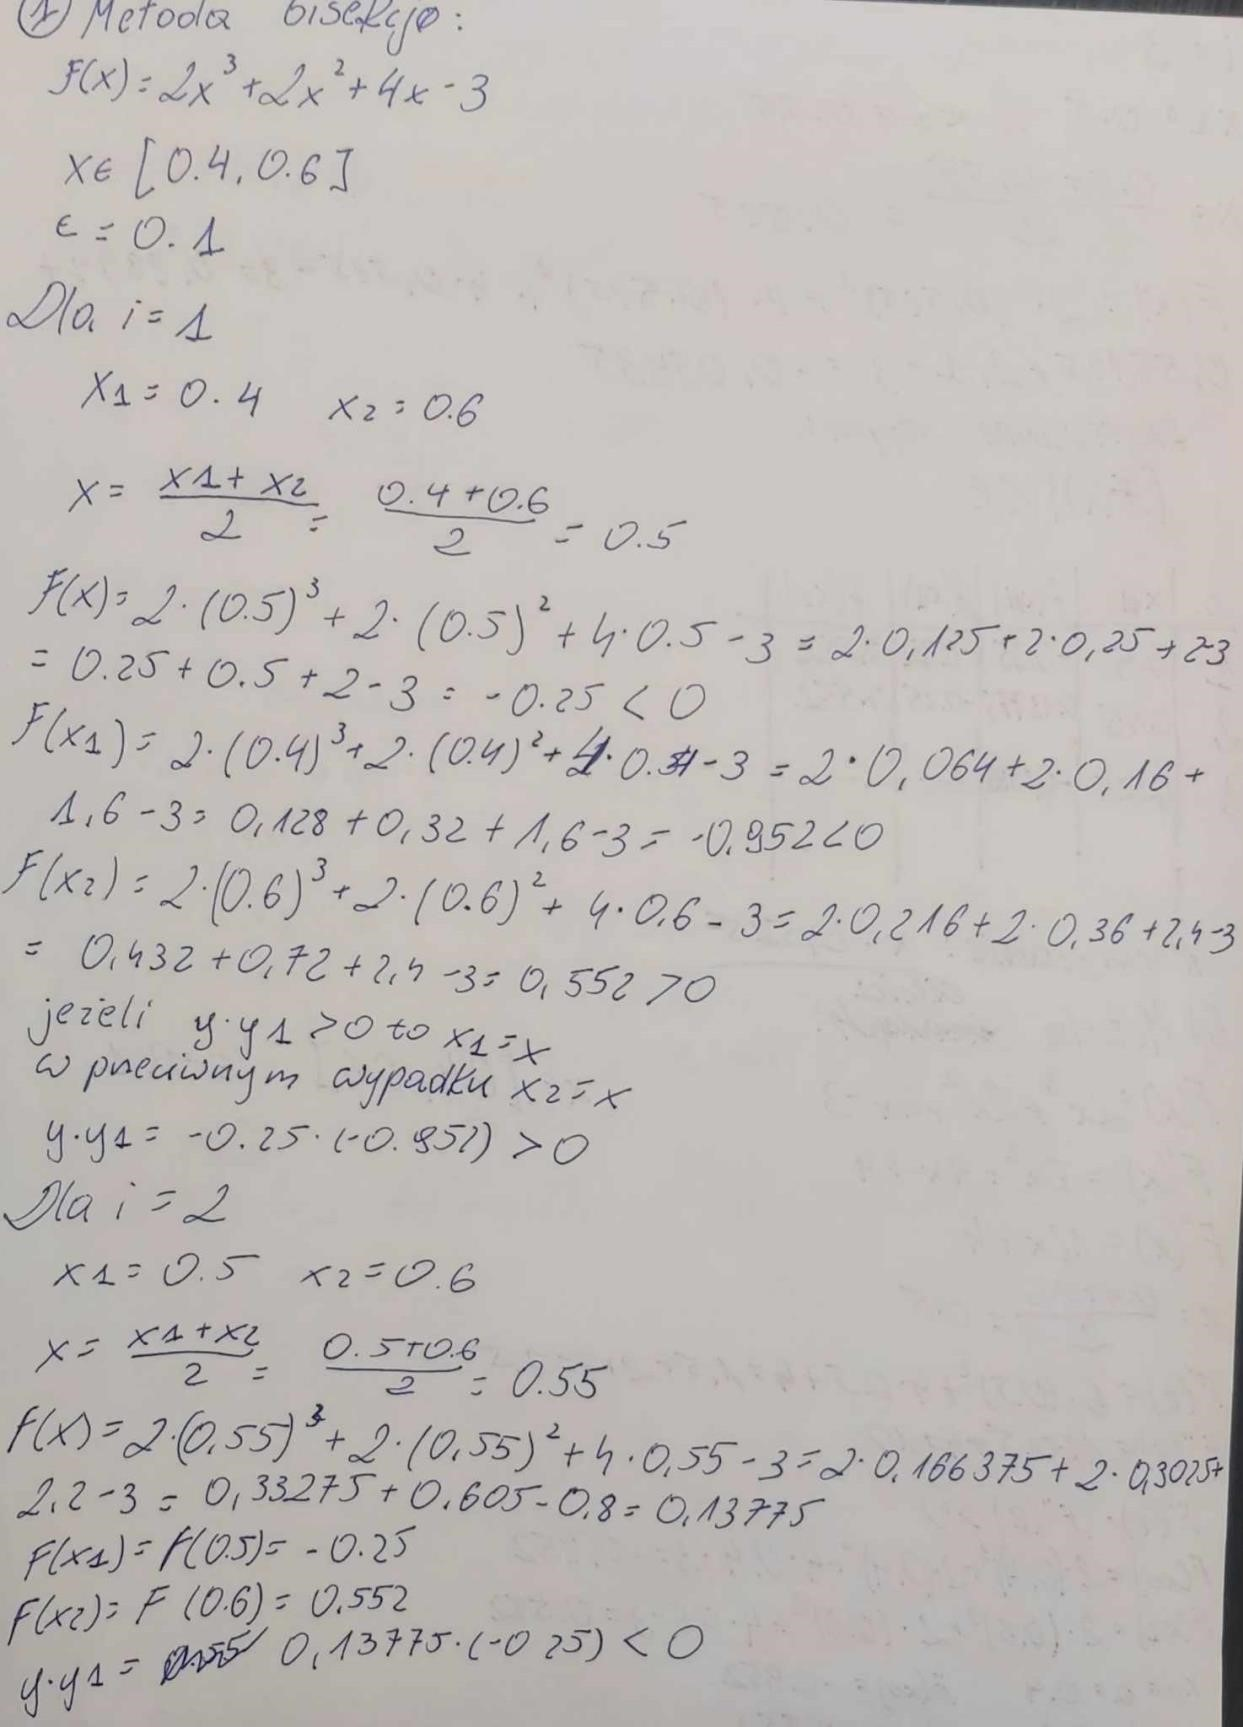 ① Metoda bisekcji:
F(x) = 2x³ + 2x² + 4x - 3
x ∈ [0.4, 0.6]
ϵ = 0.1
Dla i = 1
x1 = 0.4 x2 = 0.6
x = (x1 + x2)/2 = (0.4 + 0.6)/2 = 0.5
F(x) = 2·(0.5)³ + 2·(0.5)² + 4·0.5 - 3 = 2·0,125 + 2·0,25 + 2-3
= 0.25 + 0.5 + 2 - 3 = -0.25 < 0
F(x1) = 2·(0.4)³ + 2·(0.4)² + 4·0.4 - 3 = 2·0,064 + 2·0,16 +
1,6 - 3 = 0,128 + 0,32 + 1,6 - 3 = -0,952 < 0
F(x2) = 2·(0.6)³ + 2·(0.6)² + 4·0,6 - 3 = 2·0,216 + 2·0,36 + 2,4-3
= 0,432 + 0,72 + 2,4 - 3 = 0,552 > 0
jeżeli y·y1 > 0 to x1 = x
w przeciwnym wypadku x2 = x
y·y1 = -0.25·(-0.952) > 0
Dla i = 2
x1 = 0.5 x2 = 0.6
x = (x1 + x2)/2 = (0.5 + 0.6)/2 = 0.55
F(x) = 2·(0,55)³ + 2·(0,55)² + 4·0,55 - 3 = 2·0,166375 + 2·0,3025 +
2,2 - 3 = 0,33275 + 0.605 - 0,8 = 0,13775
F(x1) = F(0.5) = -0.25
F(x2) = F(0.6) = 0.552
y·y1 = 0,13775·(-0 25) < 0